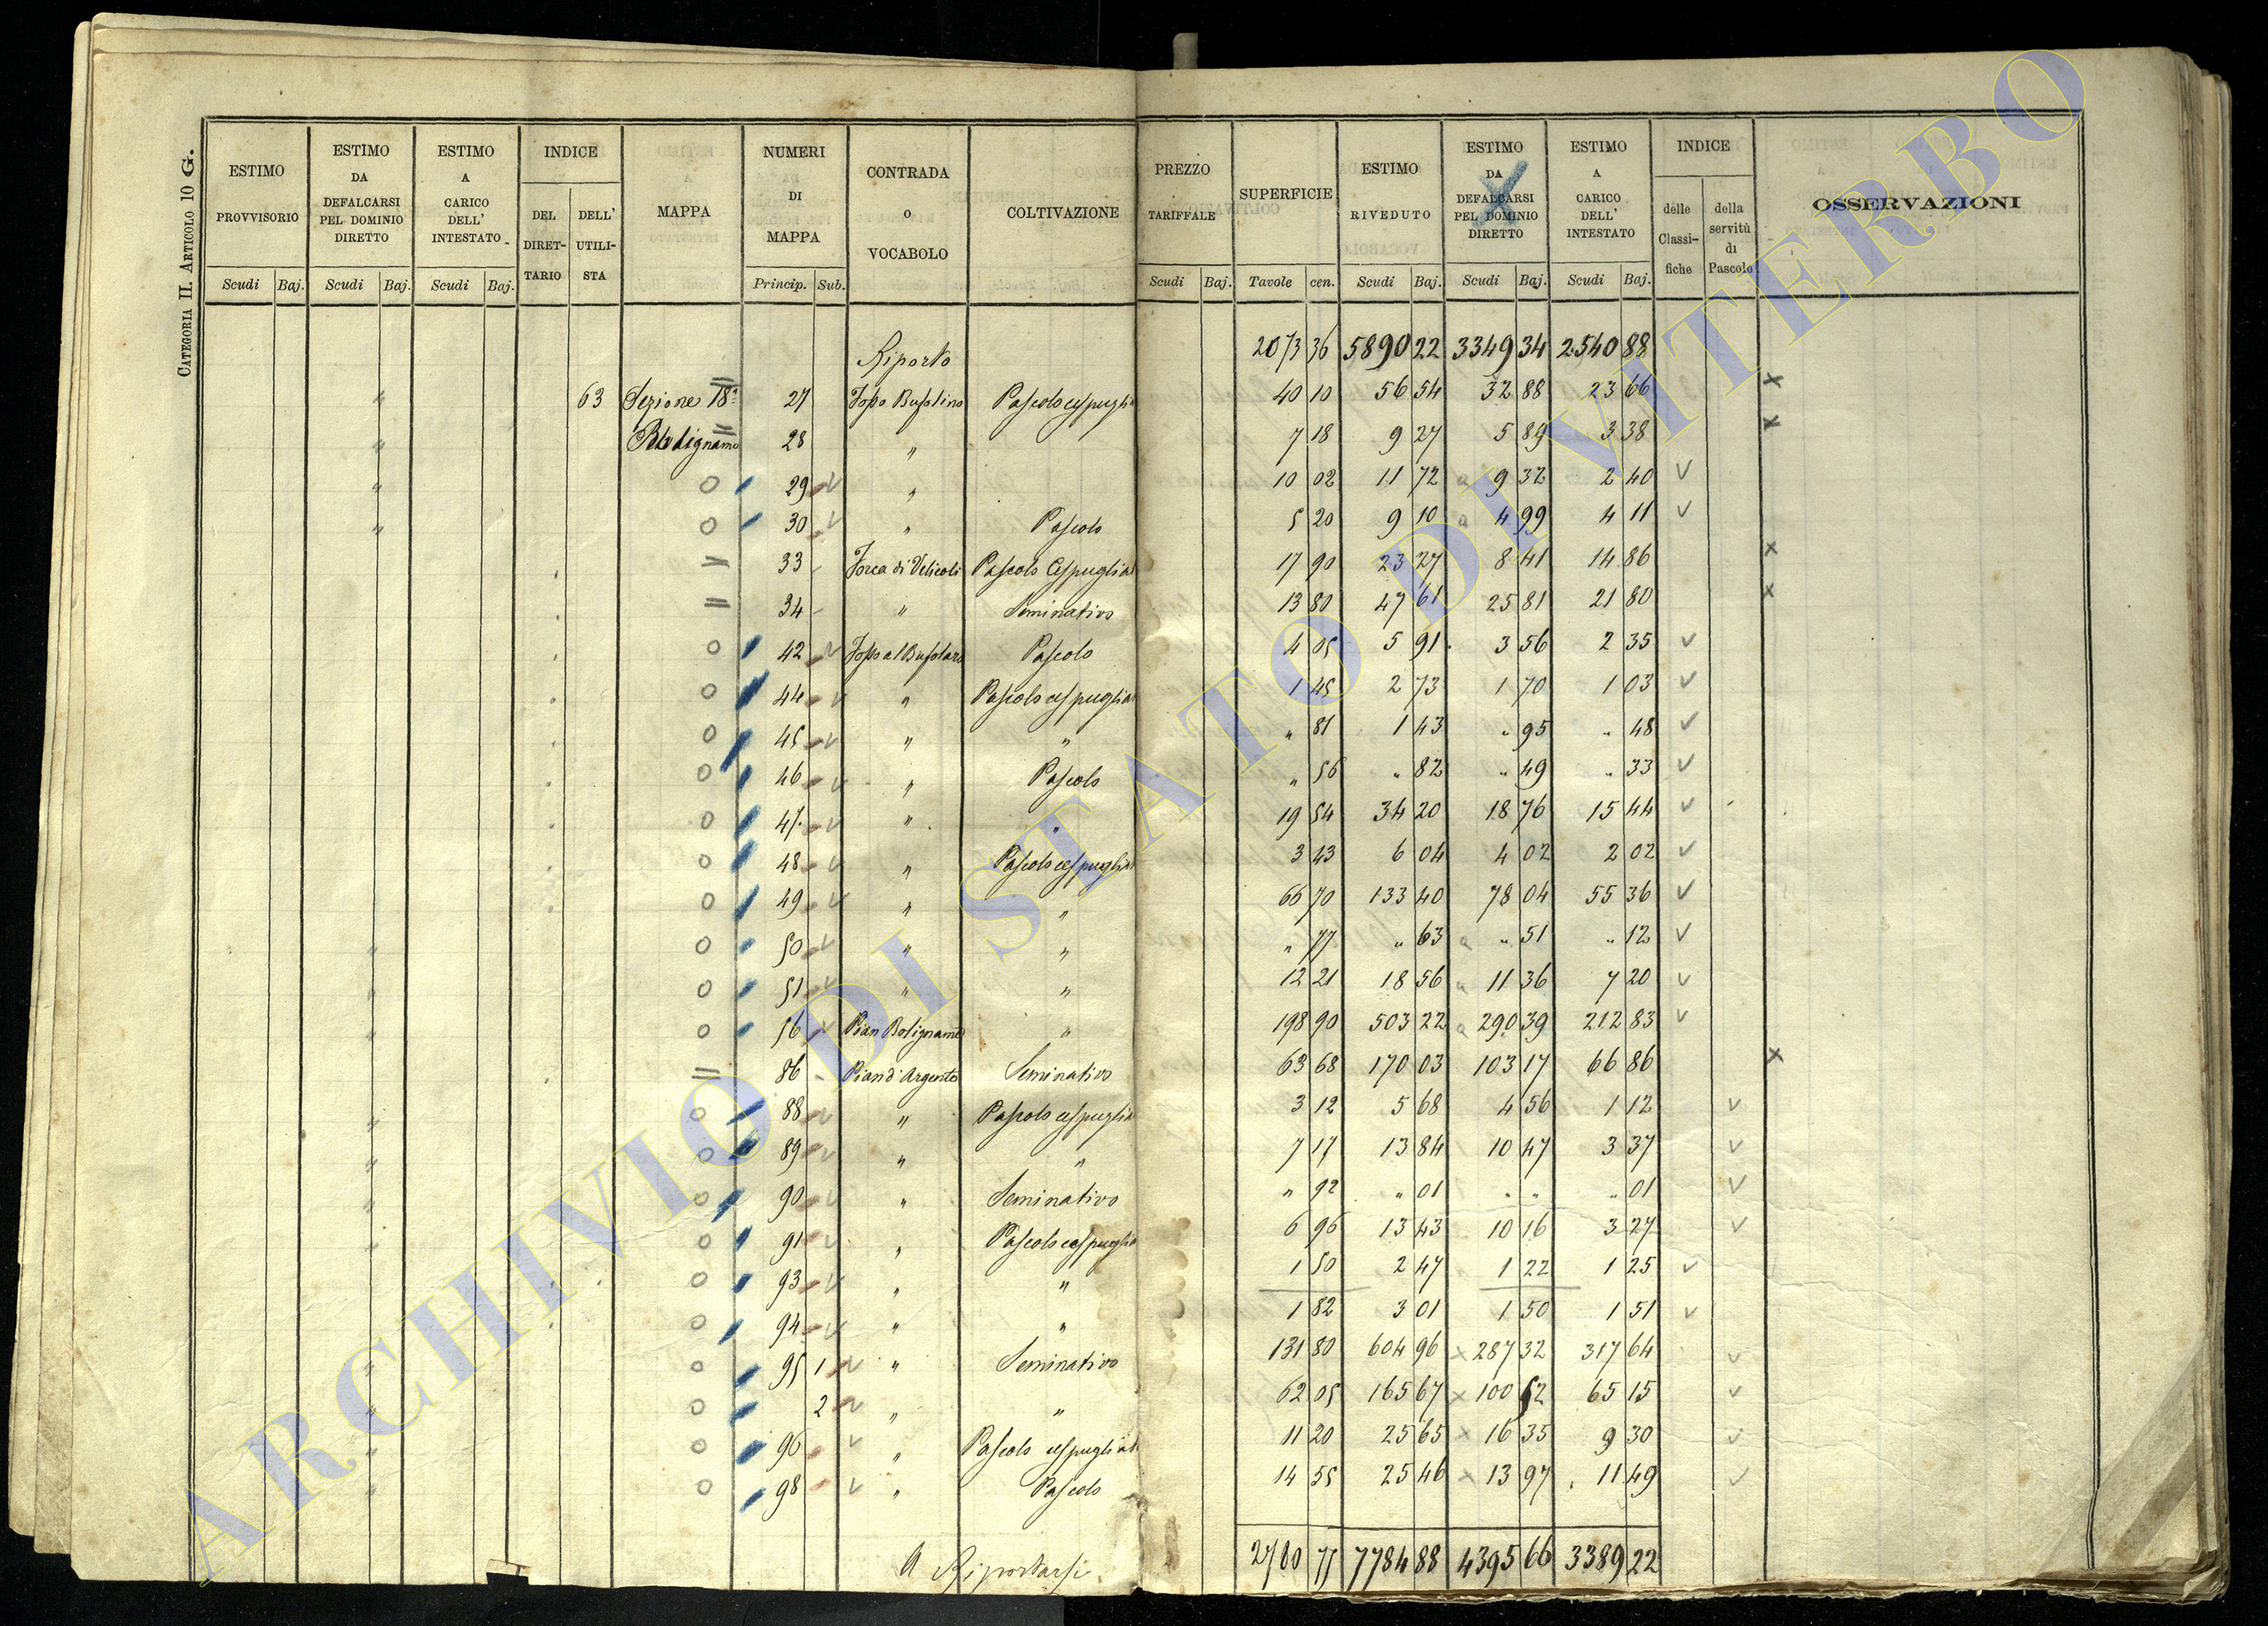 CATEGORIA II. ARTICOLO 10 G.
ESTIMO PROVVISORIO | ESTIMO DA DEFALCARSI PEL DOMINIO DIRETTO | ESTIMO A CARICO DELL' INTESTATO | INDICE | MAPPA | NUMERI DI MAPPA | CONTRADA O VOCABOLO | COLTIVAZIONE | PREZZO TARIFFALE | SUPERFICIE | ESTIMO RIVEDUTO | ESTIMO DA DEFALCARSI PEL DOMINIO DIRETTO | ESTIMO A CARICO DELL' INTESTATO | INDICE | OSSERVAZIONI
DEL DIRETTARIO | DELL' UTILISTA | delle Classifiche | della servitù di Pascolo
Scudi | Baj. | Scudi | Baj. | Scudi | Baj. | Princip. | Sub. | Scudi | Baj. | Tavole | cen. | Scudi | Baj. | Scudi | Baj. | Scudi | Baj.
Riporto 2073 36 5890 22 3349 34 2540 88
" 63 Sezione 18ª 27 Fosso Bufolino Pascolo cespuglia 40 10 56 54 32 88 23 66 x
" 28 " 7 18 9 27 5 89 3 38 x
" O 29 V " 10 02 11 72 a 9 32 2 40 V
" O 30 V " Pascolo 5 20 9 10 a 4 99 4 11 V
= 33 Forca di Velicoli Pascolo Cespugliat 17 90 23 27 8 41 14 86 x
= 34 " Seminativo 13 80 47 61 25 81 21 80 x
O 42 V Fosso al Bufolaro Pascolo 4 05 5 91 3 56 2 35 V
O 44 V " Pascolo cespugliat 1 45 2 73 1 70 1 03 V
O 45 V " " " 81 1 43 " 95 " 48 V
O 46 V " Pascolo " 56 " 82 " 49 " 33 V
O 47 V " " 19 54 34 20 18 76 15 44 V
O 48 V " Pascolo cespugliat 3 43 6 04 4 02 2 02 V
O 49 V " " 66 70 133 40 78 04 55 36 V
" O 50 V " " " 77 " 63 a " 51 " 12 V
" O 51 V " " 12 21 18 56 a 11 36 7 20 V
" O 56 V Pian Bolignamo " 198 90 503 22 a 290 39 212 83 V
= 86 Pian d'Argento Seminativo 63 68 170 03 103 17 66 86 x
" O 88 V " Pascolo cespuglia 3 12 5 68 4 56 1 12 V
" O 89 V " " 7 17 13 84 10 47 3 37 V
" O 90 V " Seminativo " 92 " 01 " " " 01 V
" O 91 V " Pascolo cespuglia 6 96 13 43 10 16 3 27 V
O 93 V " " 1 50 2 47 1 22 1 25 V
O 94 V " " 1 82 3 01 1 50 1 51 V
" O 95 1 V " Seminativo 131 80 604 96 x 287 32 317 64 V
" O 2 V " " 62 05 165 67 x 100 52 65 15 V
" O 96 V " Pascolo cespugliat 11 20 25 65 x 16 35 9 30 V
" O 98 V " Pascolo 14 55 25 46 x 13 97 11 49 V
A Riportarsi 7784 88 4395 66 3389 22
ARCHIVIO DI STATO DI VITERBO